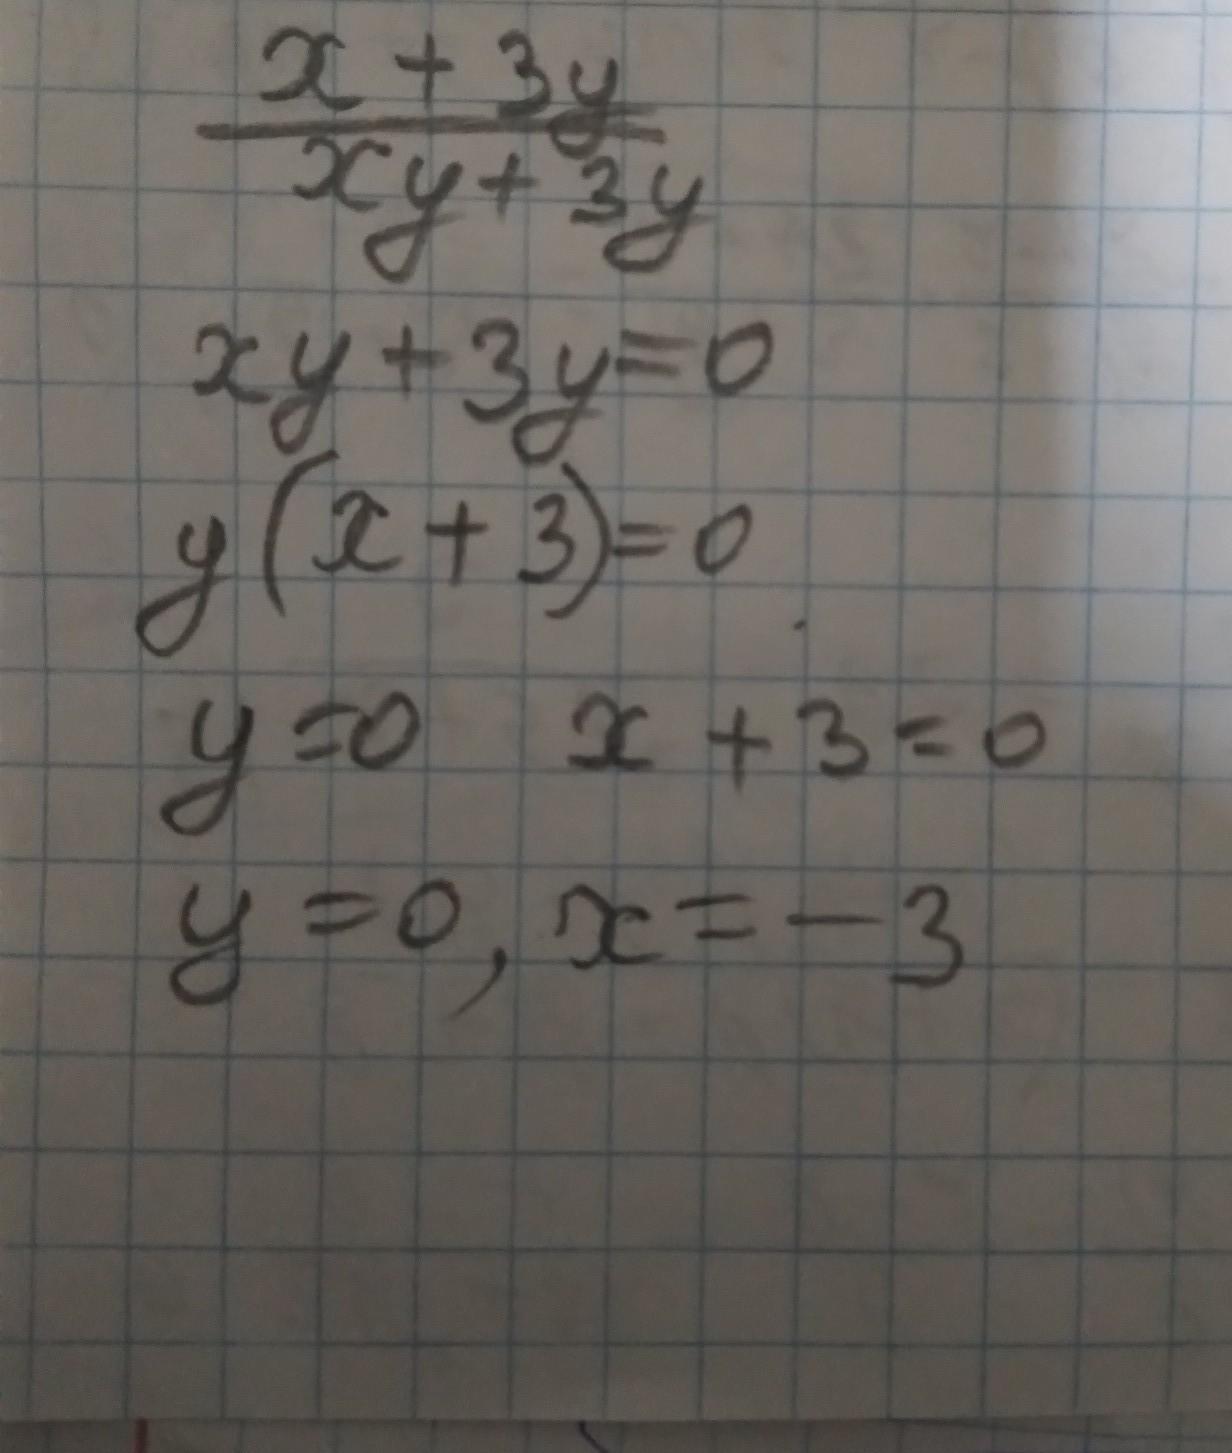 x + 3y
xy + 3y
xy + 3y = 0
y(x + 3) = 0
y = 0 x + 3 = 0
y = 0, x = - 3